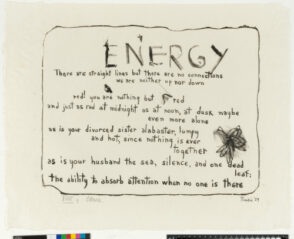 ENERGY
There are straight lines but there are no connections
we are neither up nor down
red! you are nothing but red
and just as red at midnight as at noon, at dusk maybe
even more alone
we is your divorced sister alabaster, lumpy
and hot, since nothing is ever
together
as is your husband the sea, silence, and one dead
leaf:
the ability to absorb attention when no one is there